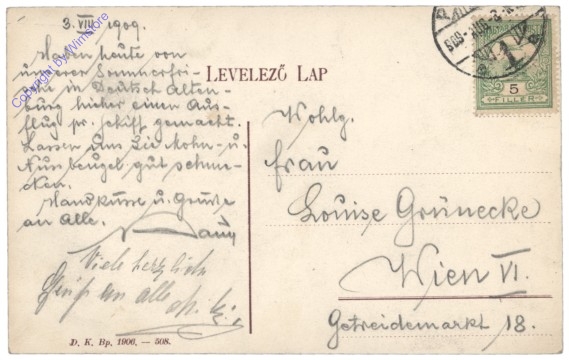 3. VIII 1909.
Haben heute von
unserer Sommerfri-
sche in Deutsch Alten-
burg hieher einen Aus-
flug pr. Schiff gemacht.
Lassen uns die Mohn- u.
Nussbeugel gut schme-
cken.
Handküsse u. Grüsse
an Alle.
Viele herzlich
Grüße an alle
D. K. Bp. 1906. — 508.
LEVELEZŐ LAP
Wohlg.
Frau
Louise Grünecke
Wien VI.
Getreidemarkt 18.
5
FILLER
Copyright by Winistore